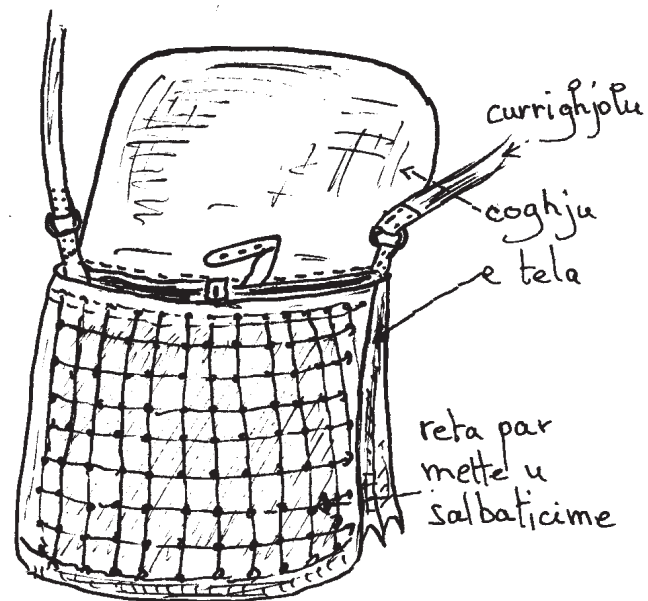 currighjolu
coghju
e tela
reta par
mette u
salbaticime